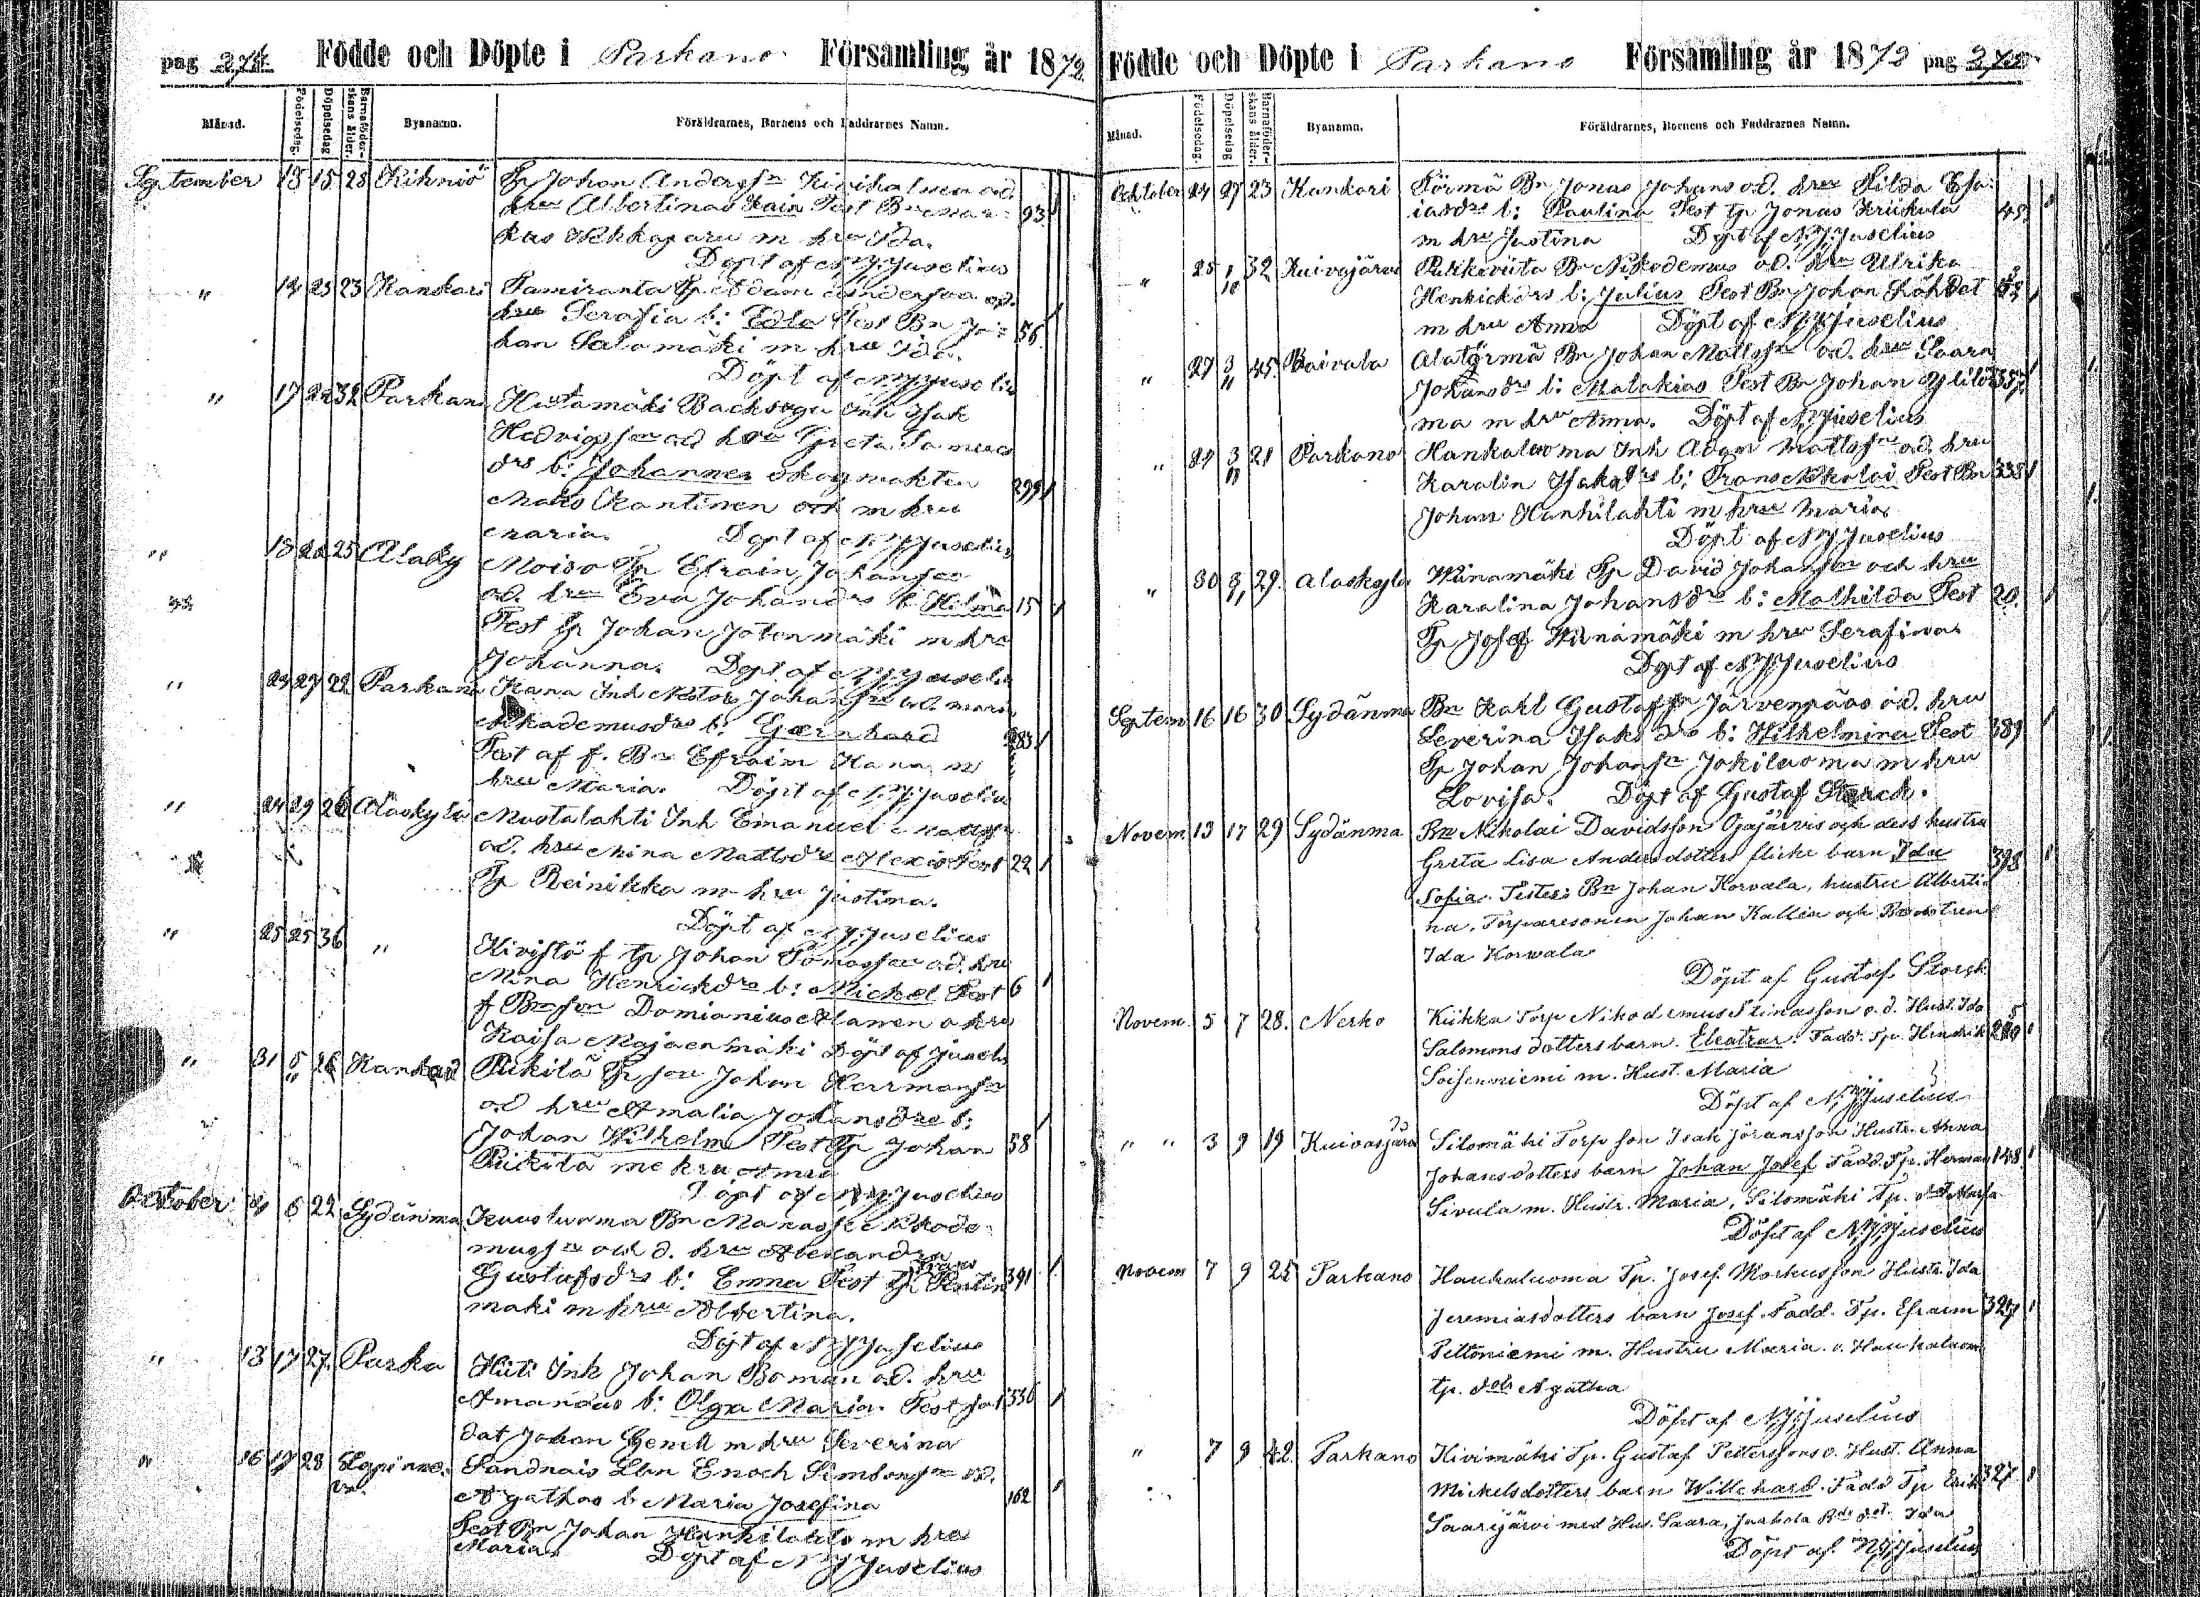 pag 274. Födde och Döpte i Parkano Församling år 1872
Månad. Födelsedag. Döpelsedag Barnaföder-skans ålder. Byanamn. Föräldrarnes, Barnens och Faddrarnes Namn.
September 13 15 28 Kihniö Tp Johan Andersn Kiviluoma o.d.
hru Albertinas Test Bn
kas m hru Ida. 93
Döpt af N J Juselius
" 14 23 23 Kankari Tamiranta Tp Adam Andersson o.d.
hru Serafia b: Edla Test Bn Jo- 56
han Salomäki m hru Ida.
Döpt af N J Juselius
" 17 22 32 Parkano Hustamäki Backstuga Inh Isak
Hedvigsson o.d. hru Greta Samuels
drs b: Johannes Skogvakten
Mats Rantinen och m hru 299
Maria. Döpt af N J Juselius
" 18 22 25 Alasky Moiso Tp Efraim Johansson
o.d. hru Eva Johansdrs b: Hilma 15
Test tp Johan Jötenmäki m hru
Johanna. Döpt af N J Juselius
" 23 27 22 Parkano Kana Inh Nestor Johansn o.d. Maria
Nikademusdrs b: Gernhard 283
Test af f. Bn Efraim Kana m
hru Maria. Döpt af N J Juselius
" 24 29 26 Alaskylä Mustalahti Inh Emanuel
o.d. hru Mina Mattsdrs Alexis Test 22
Tp Reinikka m hru Justina.
Döpt af N J Juselius
" 25 25 36 " Kivistö f tp Johan Tomasson o.d. hru
Mina Henrickdrs b: Mickel Test 6
f Bn son Domianius Alanen o hru
Kaisa Majaenmäki Döpt af Juselius
" 31 5 26 Kankari Pikilä Tp son Johan Herrmansn
o.d. hru Amalia Johansdrs b:
Johan Wilhelm Test Tp Johan 58
Pikilä med hru
Döpt af N J Juselius
October 6 22 Sydänma Kuusluoma Bn Manasse Nikode-
musn och d. hru Alexandra
Gustafsdrs b: Emma Test tp Frans 391
mäki m hru Albertina.
Döpt af N J Juselius
" 13 17 27. Parka Hiiti Inh Johan Boman o.d. hru
Amandas b: Olga Maria. Test Sol- 336
dat Johan m hru Severina
" 16 17 28 Sandnäis Enoch Simonsn o.d.
Agathas b Maria Josefina 162
Test Bn Johan Hankilahti m hru
Maria. Döpt af N J Juselius
Födde och Döpte i Parkano Församling år 1872 pag 275
Månad. Födelsedag. Döpelsedag Barnaföder-skans ålder. Byanamn. Föräldrarnes, Barnens och Faddrarnes Namn.
Ocktober 24 27 23 Kankari Törmä Bn Jonas Johans o.d. hru Hilda Esa-
iasdrs b: Paulina Test tp Jonas Kriikula 45
m hru Justina Döpt af N J Juselius
" 25 1/11 32 Kuivajärvi Pukkoviita Bn Nikodemus o.d. hru Ulrika
Henrickdrs b: Julius Test Bn Johan Lähdet
m hru Anna Döpt af N J Juselius
" 27 3/11 45. Vaivala Alatörmä Bn Johan Mattssn o.d. hru Saara
Johansdrs b: Malakias Test Bn Johan Ylitör- 357
ma m hru Anna. Döpt af N J Juselius
" 29 3/11 21 Parkano Hankaluoma Inh Adam Mattssn o.d. hru
Karalin Isaksdrs b: Frans Nikolai Test Bn 338
Johan Hankilahti m hru Maria
Döpt af N J Juselius
" 30 3/11 29. Alaskylä Wiinamäki Tp David Johansn och hru
Karalina Johansdrs b: Mathilda Test 20.
Tp Josef Wiinamäki m hru Serafina
Döpt af N J Juselius
Septem 16 16 30 Sydänma Bn Karl Gustafsn Järvenpääs o.d. hru
Severina Isaksdrs b: Wilhelmina Test 389
Tp Johan Johansn Jokiluoma m hru
Lovisa. Döpt af Gustaf Storck.
Novem 13 17 29 Sydänma Bn Nikolai Davidsson Ojajärvis och dess hustru
Greta Lisa Andersdotters flicke barn Ida 398
Sofia. Tester: Bn Johan Korvala, hustru Alberti-
na, Torparesonen Johan Kallia och Bondotren
Ida Korwala
Döpt af Gustaf Storck
Novem. 5 7 28. Nerko Kiikka Torp Nikodemus Stinasson o.d. Hust. Ida
Salomons dotters barn. Eleatzar. Fadd. Tp. Hindrik
Soisenniemi m. Hust. Maria
Döpt af N. J. Juselius
" " 3 9 19 Kuivasjärvi Silomäki Torp son Isak Jöransson Hustr. Anna
Johansdotters barn Johan Josef Fadd. Tp. Herman 148
Sivula m. Hustr. Maria, Silomäki Tp. dot
Döpt af N J Juselius
Novem 7 9 25 Parkano Haukaluoma Tp. Josef Markusson Hustr. Ida
Jeremiasdotters barn Josef. Fadd. Tp. Efraim 329
Peltoniemi m. Hustru Maria. o. Haukaluom
tp. dotr Agatha
Döpt af N J Juselius
" 7 9 42. Parkano Kivimäki Tp. Gustaf Pettersson o. Hust. Anna
Mickelsdotters barn Willehard. Fadd Tp Erik 327
Saarijärvi med Hus. Saara, Juhola dot. Ida
Döpt af N J Juselius